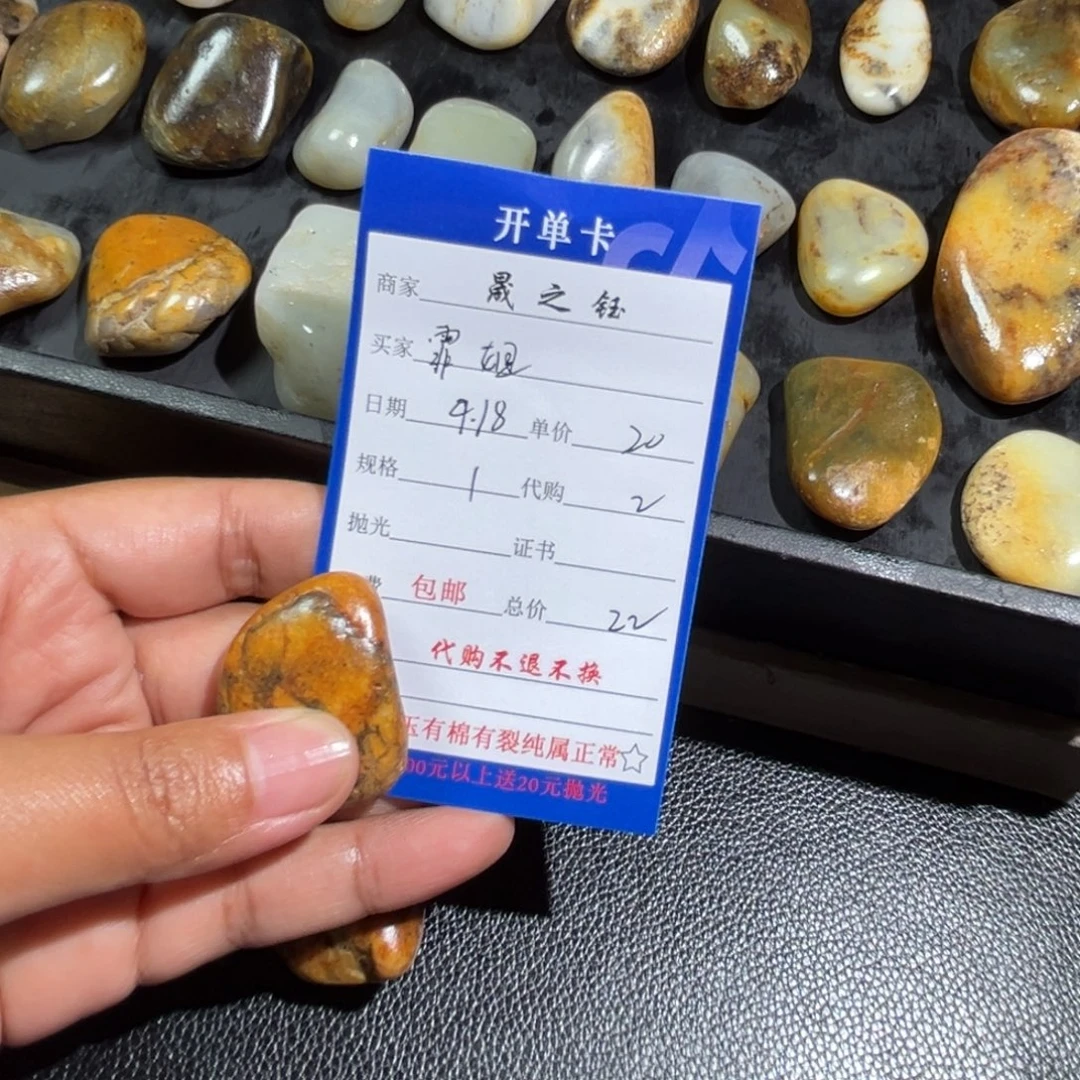 开单卡
商家 晟之钰
买家 霏姐
日期 4.18 单价 20
规格 1 代购 2
抛光 证书
费 包邮 总价 22
代购不退不换
玉有棉有裂纯属正常☆
00元以上送20元抛光